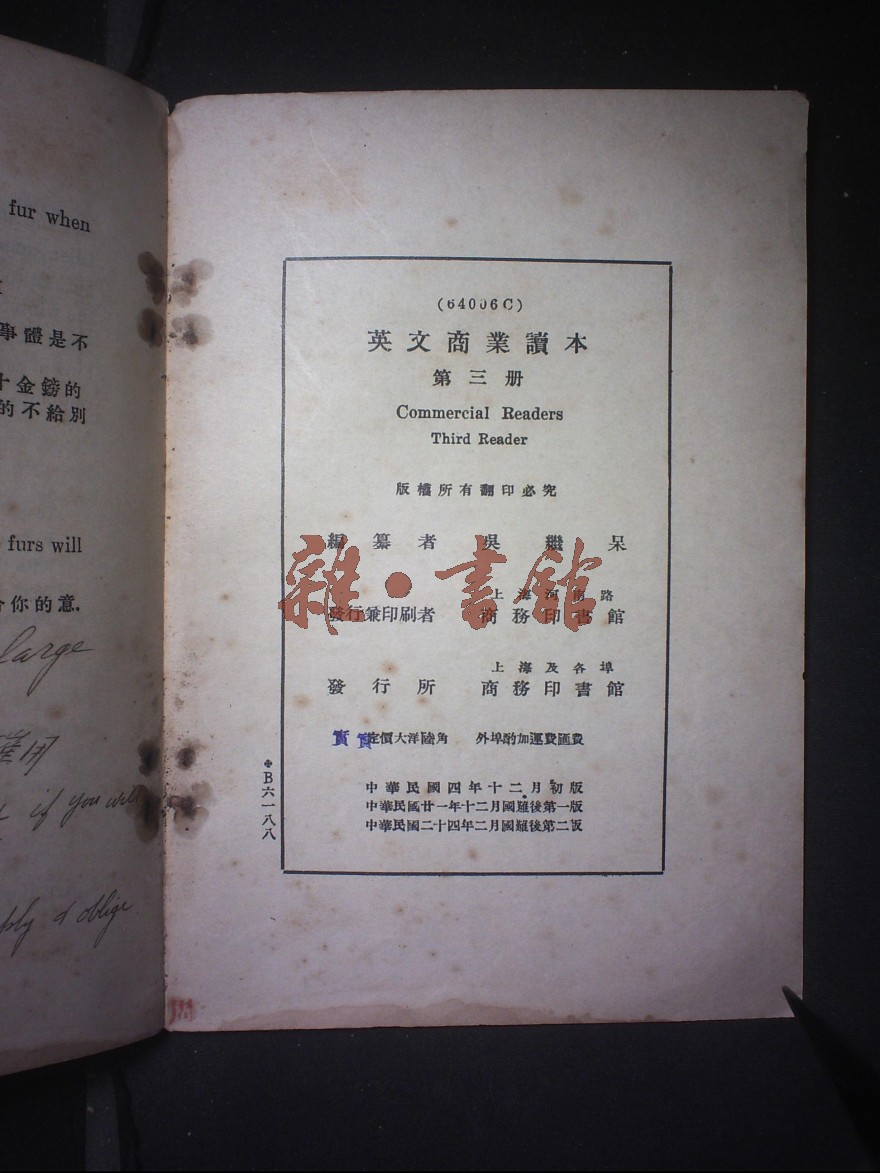 fur when
事體是不
十金鎊的
的不給別
furs will
你的意.
large
if you will
& oblige
(64006C)
英文商業讀本
第三册
Commercial Readers
Third Reader
版權所有翻印必究
編纂者 吳繼杲
上海河南路
發行兼印刷者 商務印書館
上海及各埠
發行所 商務印書館
實 實 定價大洋陸角 外埠酌加運費匯費
中華民國四年十二月初版
中華民國廿一年十二月國難後第一版
中華民國二十四年二月國難後第二版
B六一八八
雜·書館